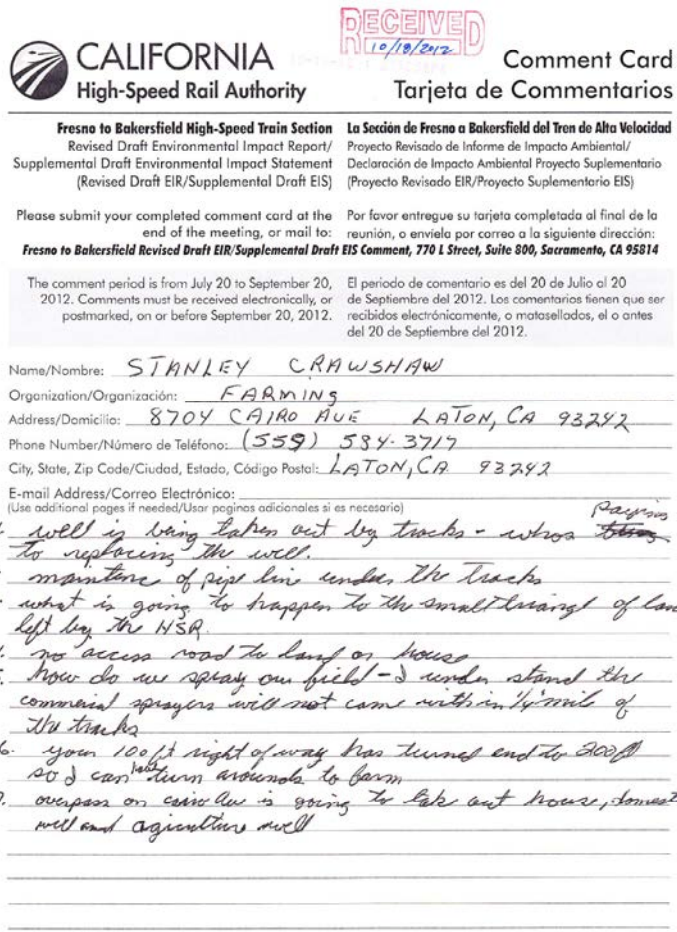 RECEIVED
10/19/2012
CALIFORNIA
High-Speed Rail Authority
Comment Card
Tarjeta de Commentarios
Fresno to Bakersfield High-Speed Train Section
Revised Draft Environmental Impact Report/
Supplemental Draft Environmental Impact Statement
(Revised Draft EIR/Supplemental Draft EIS)
La Sección de Fresno a Bakersfield del Tren de Alta Velocidad
Proyecto Revisado de Informe de Impacto Ambiental/
Declaración de Impacto Ambiental Proyecto Suplementario
(Proyecto Revisado EIR/Proyecto Suplementario EIS)
Please submit your completed comment card at the
end of the meeting, or mail to:
Por favor entregue su tarjeta completada al final de la
reunión, o envíela por correo a la siguiente dirección:
Fresno to Bakersfield Revised Draft EIR/Supplemental Draft EIS Comment, 770 L Street, Suite 800, Sacramento, CA 95814
The comment period is from July 20 to September 20,
2012. Comments must be received electronically, or
postmarked, on or before September 20, 2012.
El periodo de comentario es del 20 de Julio al 20
de Septiembre del 2012. Los comentarios tienen que ser
recibidos electrónicamente, o matasellados, el o antes
del 20 de Septiembre del 2012.
Name/Nombre: STANLEY CRAWSHAW
Organization/Organización: FARMING
Address/Domicilio: 8704 CAIRO AVE LATON, CA 93242
Phone Number/Número de Teléfono: (559) 584-3717
City, State, Zip Code/Ciudad, Estado, Código Postal: LATON, CA 93242
E-mail Address/Correo Electrónico:
(Use additional pages if needed/Usar paginas adicionales si es necesario)
well is being taken out by tracks - whos paying
to replacing the well.
maintence of pipe line under the tracks
what is going to happen to the small triangl of lan
left by the HSR.
no access road to land or house
how do we spray our field - I under stand the
commerial sprayers will not come within 1/4 mil of
the tracks
6. your 100 ft right of way has turned end to 200 ft
so I can have turn arounds to farm
overpass on cairo Ave is going to take out house, domest
well and agriculture well